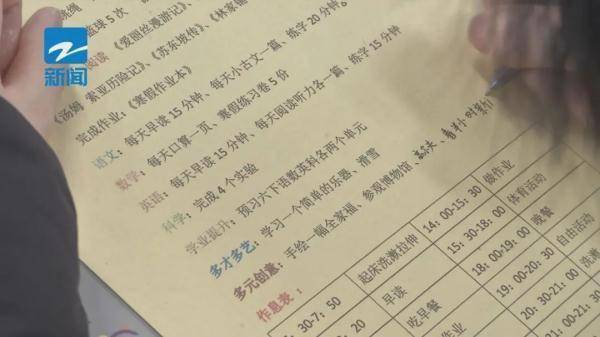 新闻
跳绳
篮球5次
阅读
《爱丽丝漫游记》、《苏东坡传》、《林家铺
《汤姆 索亚历险记》、《寒假作业本》
完成作业:
语文:每天早读15分钟、每天小古文一篇、练字20分钟。
数学:每天口算一页、寒假练习卷5份
英语:每天早读15分钟、每天阅读听力各一篇、练字15分钟
科学:完成4个实验
学业提升:预习六下语数英科各两个单元
多才多艺:学习一个简单的乐器、滑雪
多元创意:手绘一幅全家福、参观博物馆、
作息表:
30-7:50 起床洗漱拉伸 14:00-15:30 做作业
20 早读 15:30-18:00 体育活动
吃早餐 18:00-19:00 晚餐
作业 19:00-20:30 自由活动
20:30-21:00 洗漱
21:00